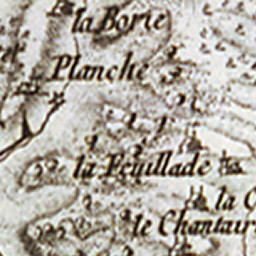 la Borie
Planche
la Feuillade
la
le Chantair